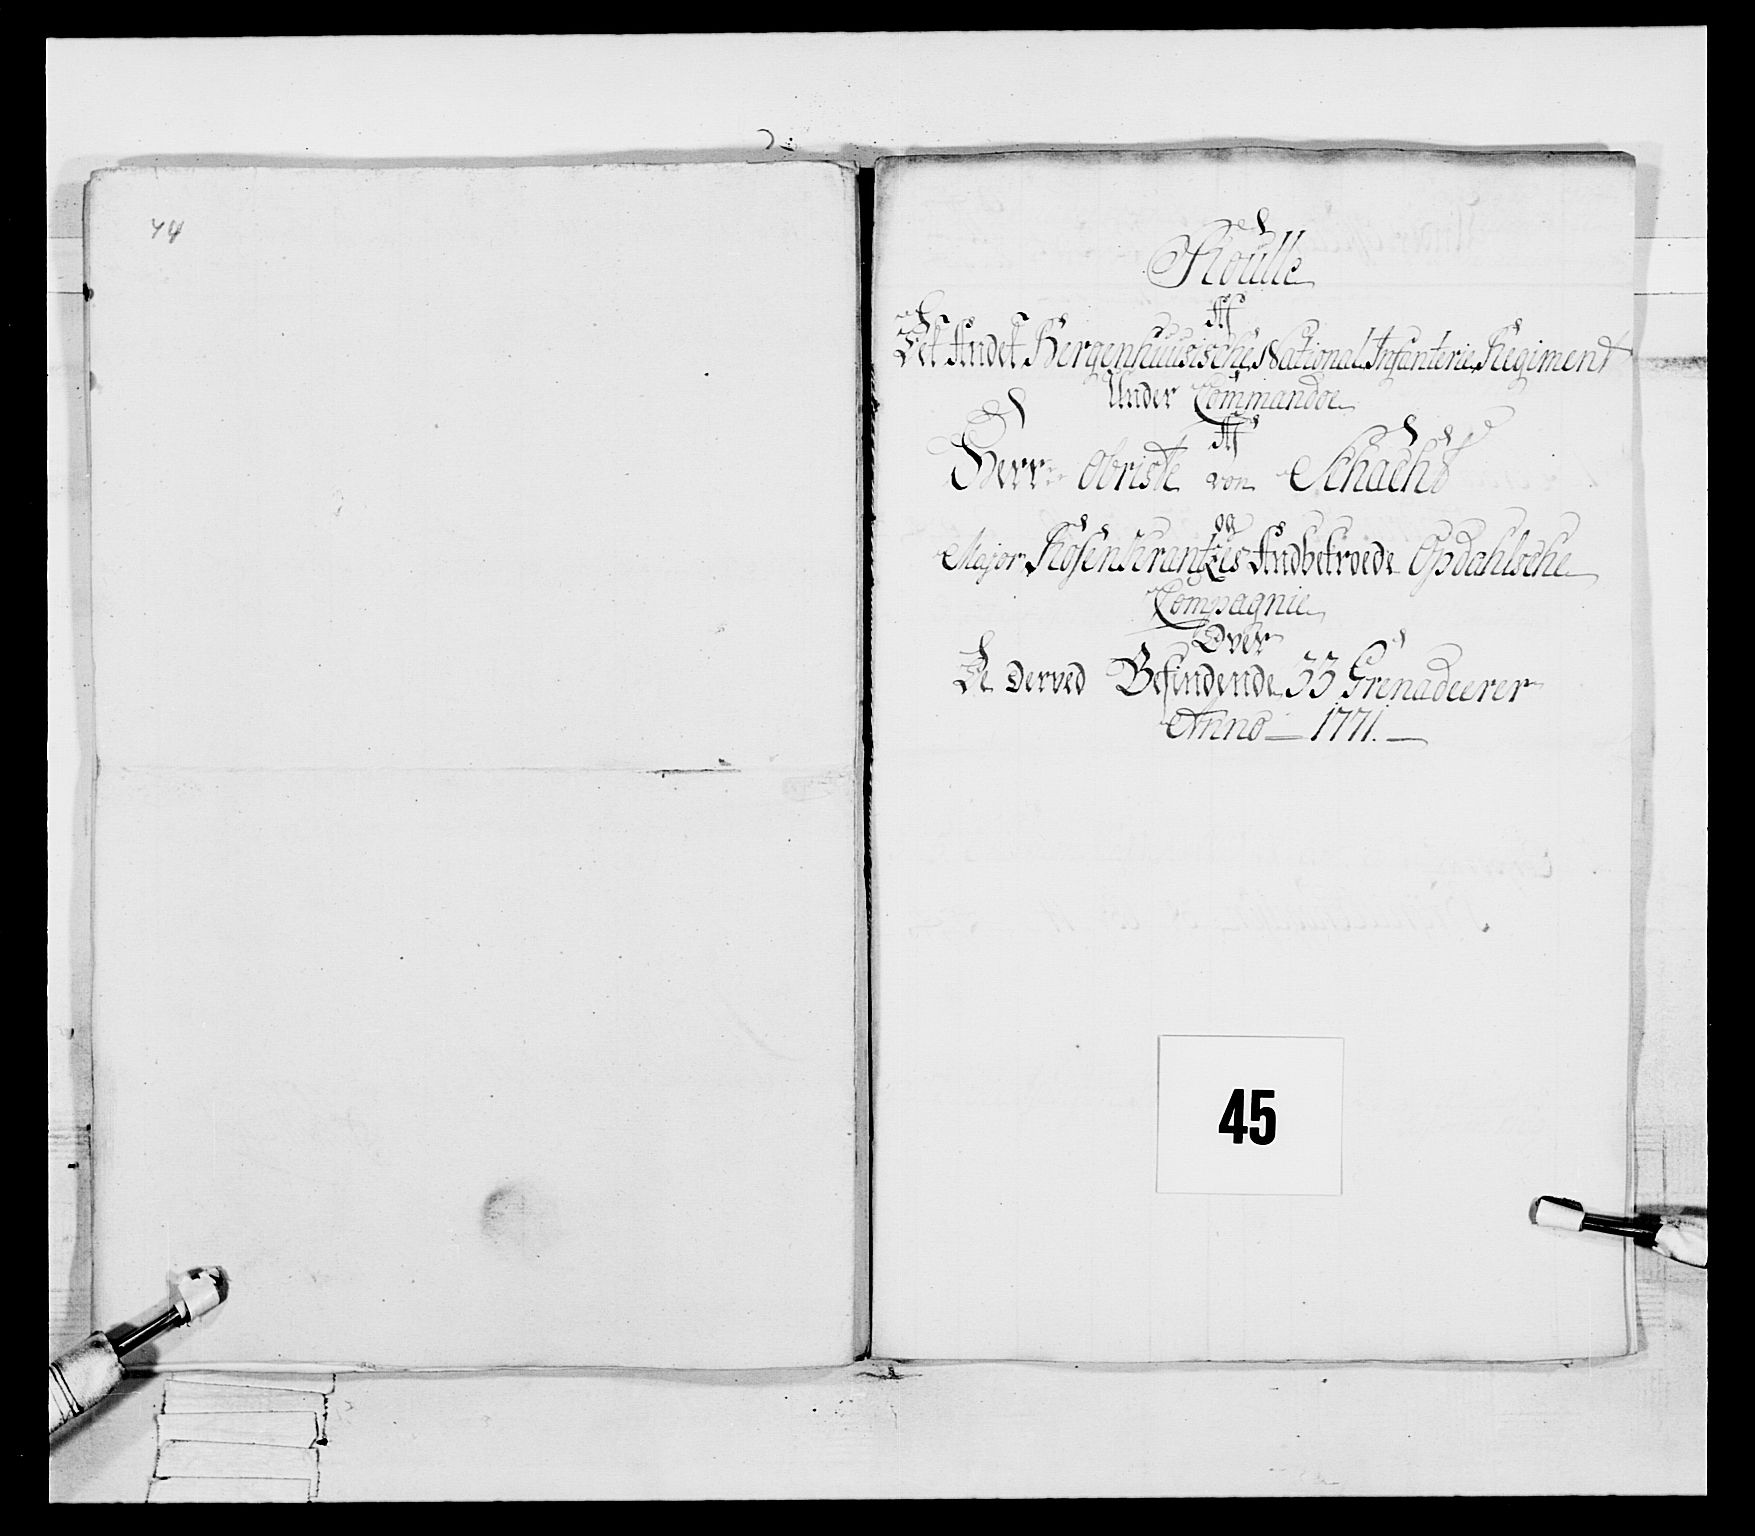 74
Roulle
Af
Det Andet Bergenhuusische National Infanterie Regiment
Under Commandoe
Af
Herr Obriste von Schacht
og
Major Rosenkrantzes Andbetroede Opdahlsche
Compagnie
Over
De derved Befindende 33 Grenadeerer
Anno 1771.
45